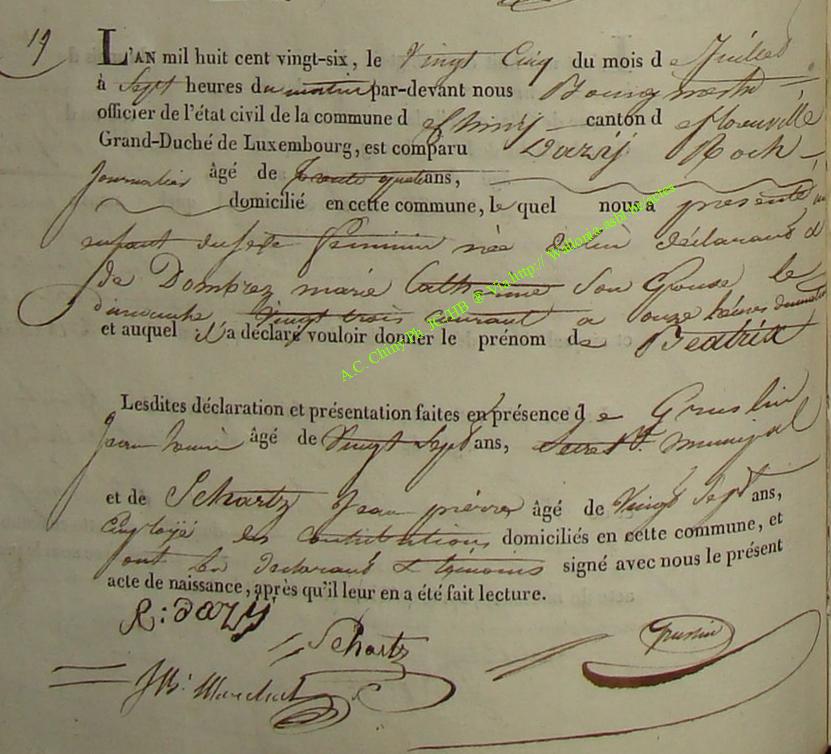 19
L'AN mil huit cent vingt-six, le Vingt Cinq du mois de Juillet
à Sept heures du matin par-devant nous Bourgmestre
officier de l'état civil de la commune d e Chiny canton d e florenville
Grand-Duché de Luxembourg, est comparu Dazÿ Roch
journalier âgé de trente quatre ans,
domicilié en cette commune, le quel nous a présenté un
enfant du sexe feminin née de lui déclarant &
de Dombrez marie Catherine Son Epouse le
dimanche Vingt trois courant a onze heures du matin
et auquel il a déclaré vouloir donner le prénom de Beatrix
Lesdites déclaration et présentation faites en présence d e Gruslin
Jean louis âgé de Vingt Sept ans, Secret. municipal
et de Schartz Jean pierre âgé de Vingt Sept ans,
Employé es contributions domiciliés en cette commune, et
ont les declarant & témoins signé avec nous le présent
acte de naissance, après qu'il leur en a été fait lecture.
R: Dazy
Schartz
Gruslin
JB: Marchal
A.C. Chiny Ph. JGHB @ Via http:// Wallonia-asbl